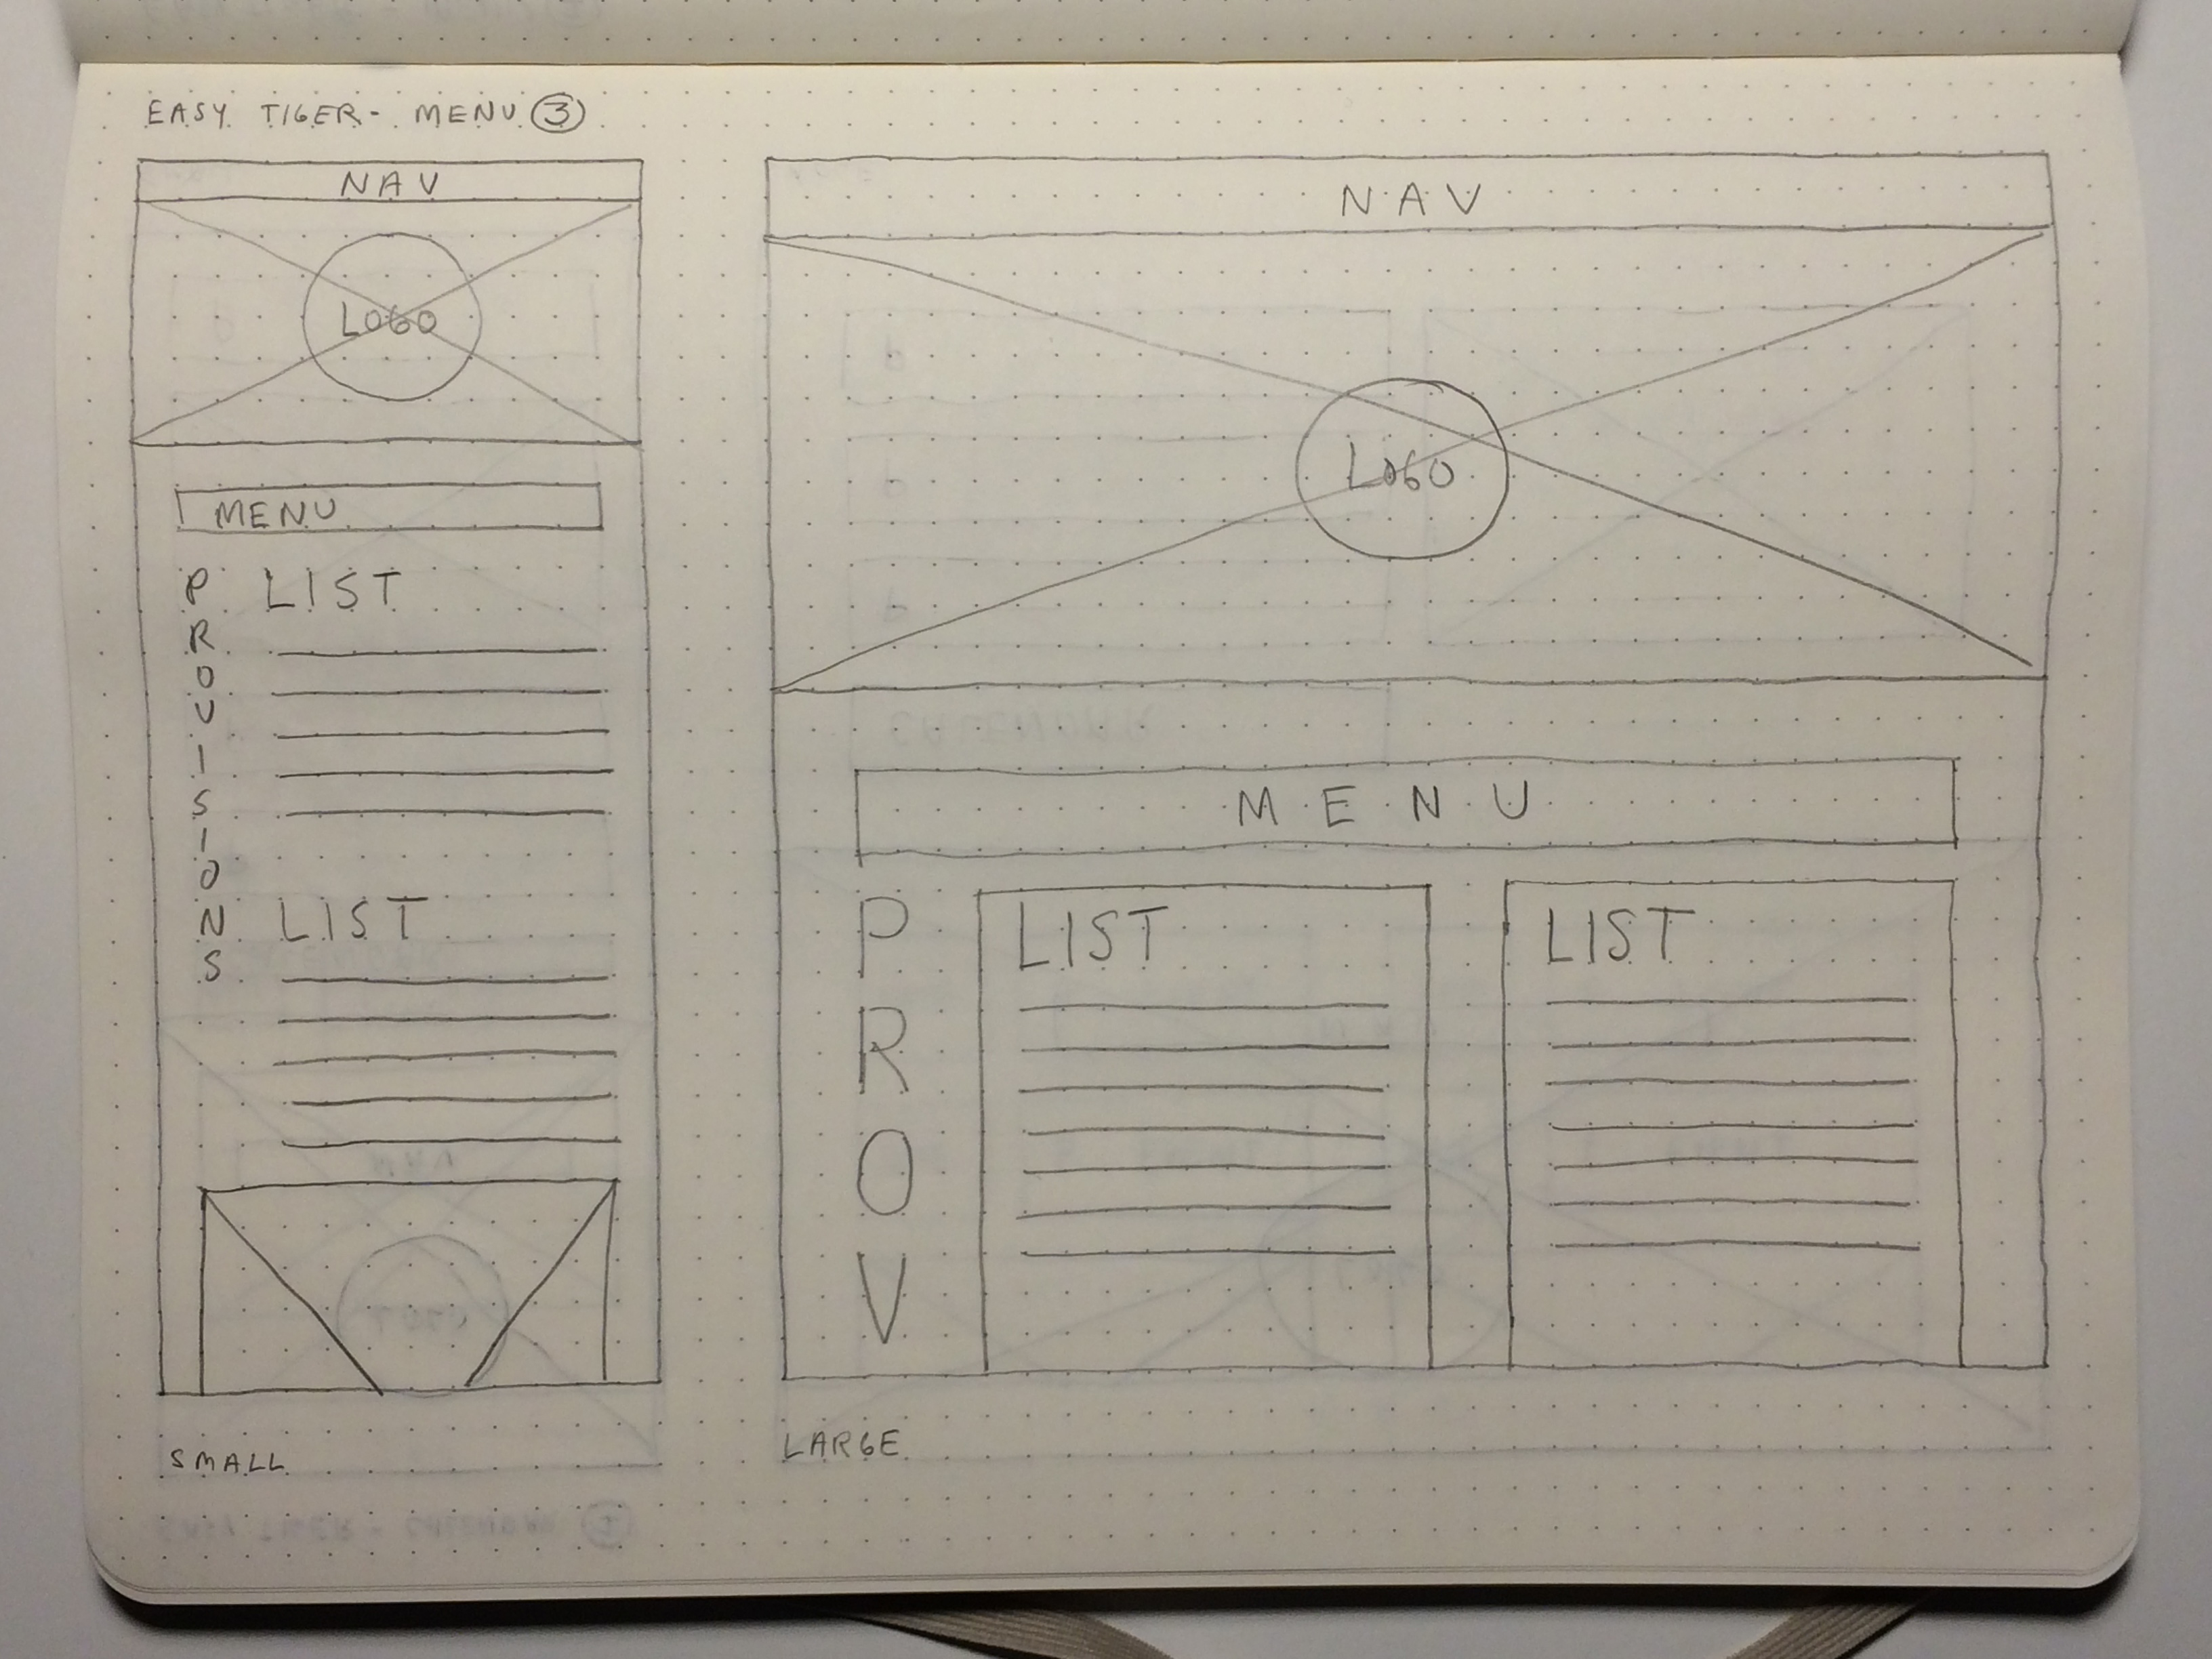 EASY TIGER - MENU 3
NAV
LOGO
MENU
PROVISIONS
LIST
LIST
SMALL
NAV
LOGO
MENU
PROV
LIST
LIST
LARGE